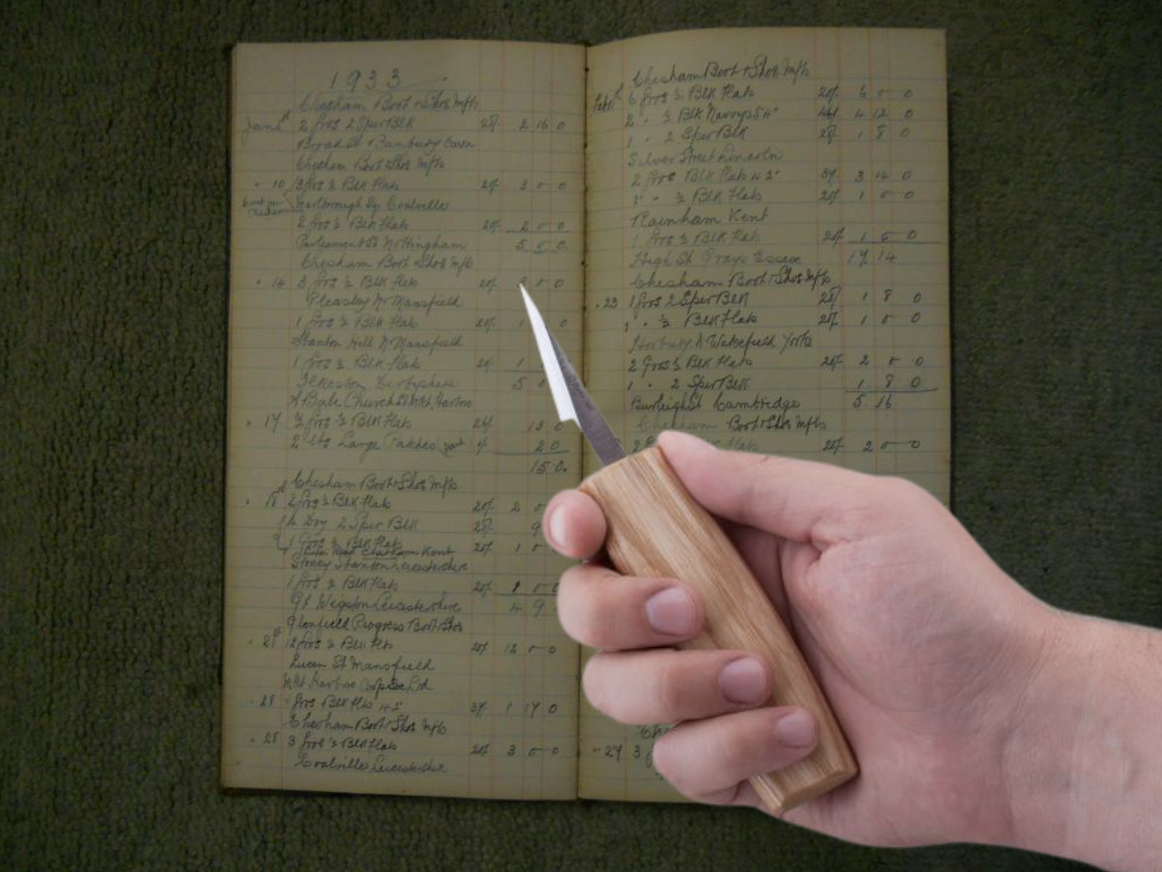 1933
Chesham Boot & Shoe Mfts
Jan 2 Gros 2 Sper Blk 28/- 2 16 0
Broad St Banbury Oxon
Chesham Boot & Shoe Mfts
" 10 3 Gros ½ Blk Flats 20/- 3 0 0
Coalville
2 Gros ½ Blk Flats 20/- 2 0 0
Parliament St Nottingham 5 0 0
Chesham Boot & Shoe Mfts
" 14 3 Gros ½ Blk Flats 20/- 0 0
Pleasley Nr Mansfield
1 Gros ½ Blk Flats 20/- 1 0
Stanton Hill Nr Mansfield
1 Gros ½ Blk Flats 20/- 1
Ilkeston Derbyshire 5 0
Church St Mkt Harboro
" 17 ½ Gros ½ Blk Flats 26/- 13 0
2 Large Patches 2 0
15 0
Chesham Boot & Shoe Mfts
" 18 2 Gros ½ Blk Flats 20/- 2 0
Doz 2 Sper Blk 28/- 9
1 Gros ½ Blk Flats 20/- 1 0
Chatham Kent
Stoney Stanton Leicestershire
1 Gros ½ Blk Flats 20/- 1 0 0
Gt Wigston Leicestershire 4 9
Glenfield Progress Boot & Shoe
" 21st 12 Gros ½ Blk Flts 20/- 12 0 0
Queen St Mansfield
Mkt Harboro Corp Soc Ltd
" 25 1 Gros Blk Flts 37/- 1 17 0
Chesham Boot & Shoe Mfts
" 25 3 Gros ½ Blk Flats 20/- 3 0 0
Coalville Leicestershire
Chesham Boot & Shoe Mfts
Feb 6 Gros ½ Blk Flats 20/- 6 0 0
2 " ½ Blk Navvys 46/- 4 12 0
1 " 2 Sper Blk 28/- 1 8 0
Silver Street Lincoln
2 Gros Blk Flats 37/- 3 14 0
1 " ½ Blk Flats 20/- 1 0 0
Rainham Kent
1 Gros ½ Blk Flats 20/- 1 0 0
High St Grays Essex 17 14
Chesham Boot & Shoe Mfts
" 23 1 Gros 2 Sper Blk 28/- 1 8 0
1 " ½ Blk Flats 20/- 1 0 0
Horbury Nr Wakefield Yorks
2 Gros ½ Blk Flats 20/- 2 0 0
1 " 2 Sper Blk 1 8 0
Burleigh St Cambridge 5 16
Chesham Boot & Shoe Mfts
2 Flats 20/- 2 0 0
Che
" 27 3 G